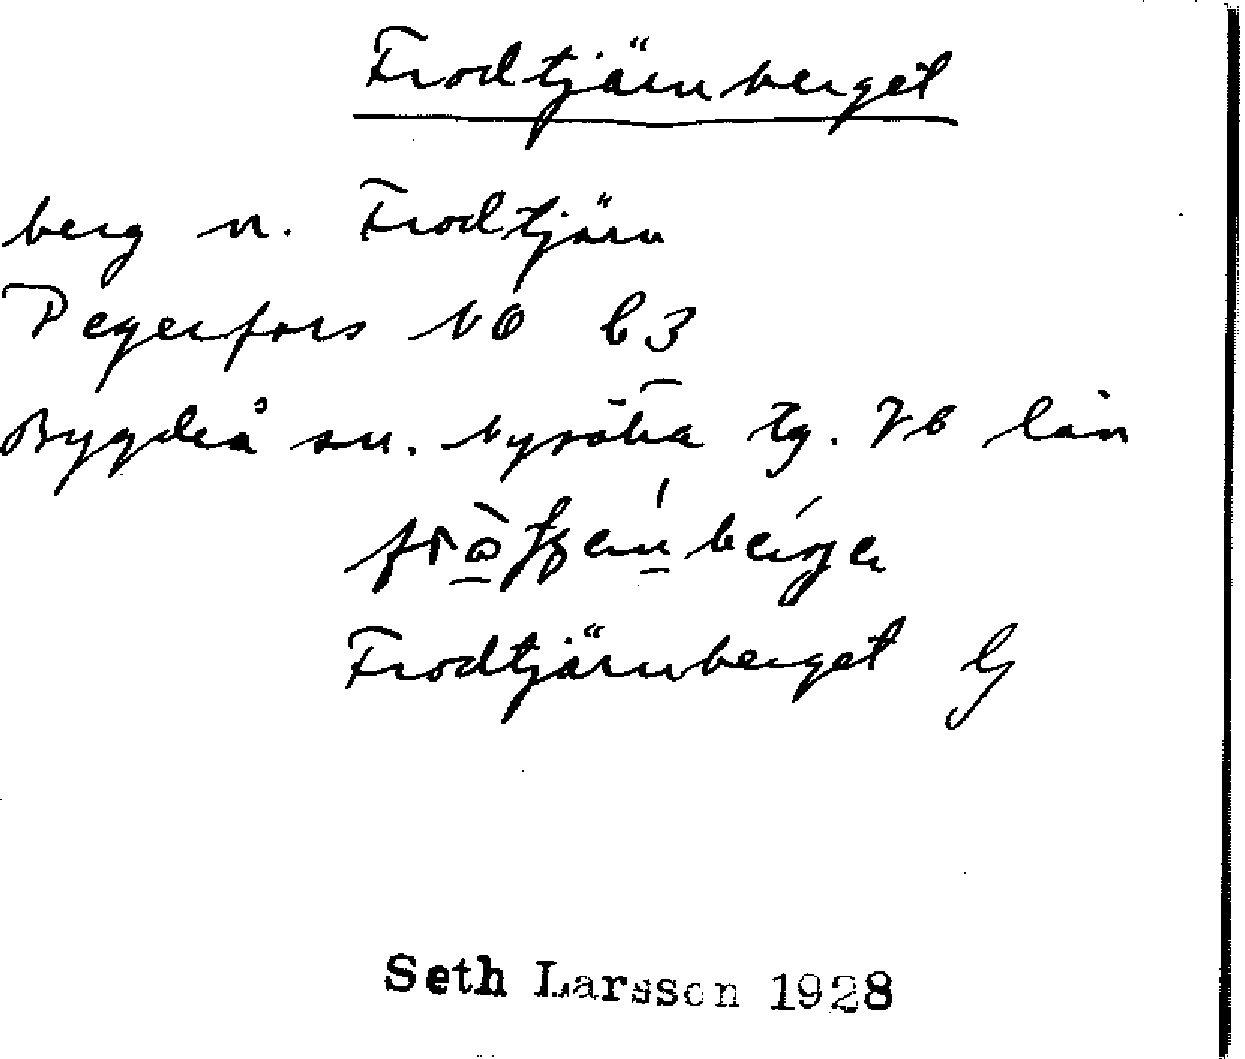 Frodtjärnberget
berg n. Frodtjärn
Pegerfors NO b3
Bygdeå sn. Nysätra tg. Vb län
Frodtjärnberget G
Seth Larsson 1928